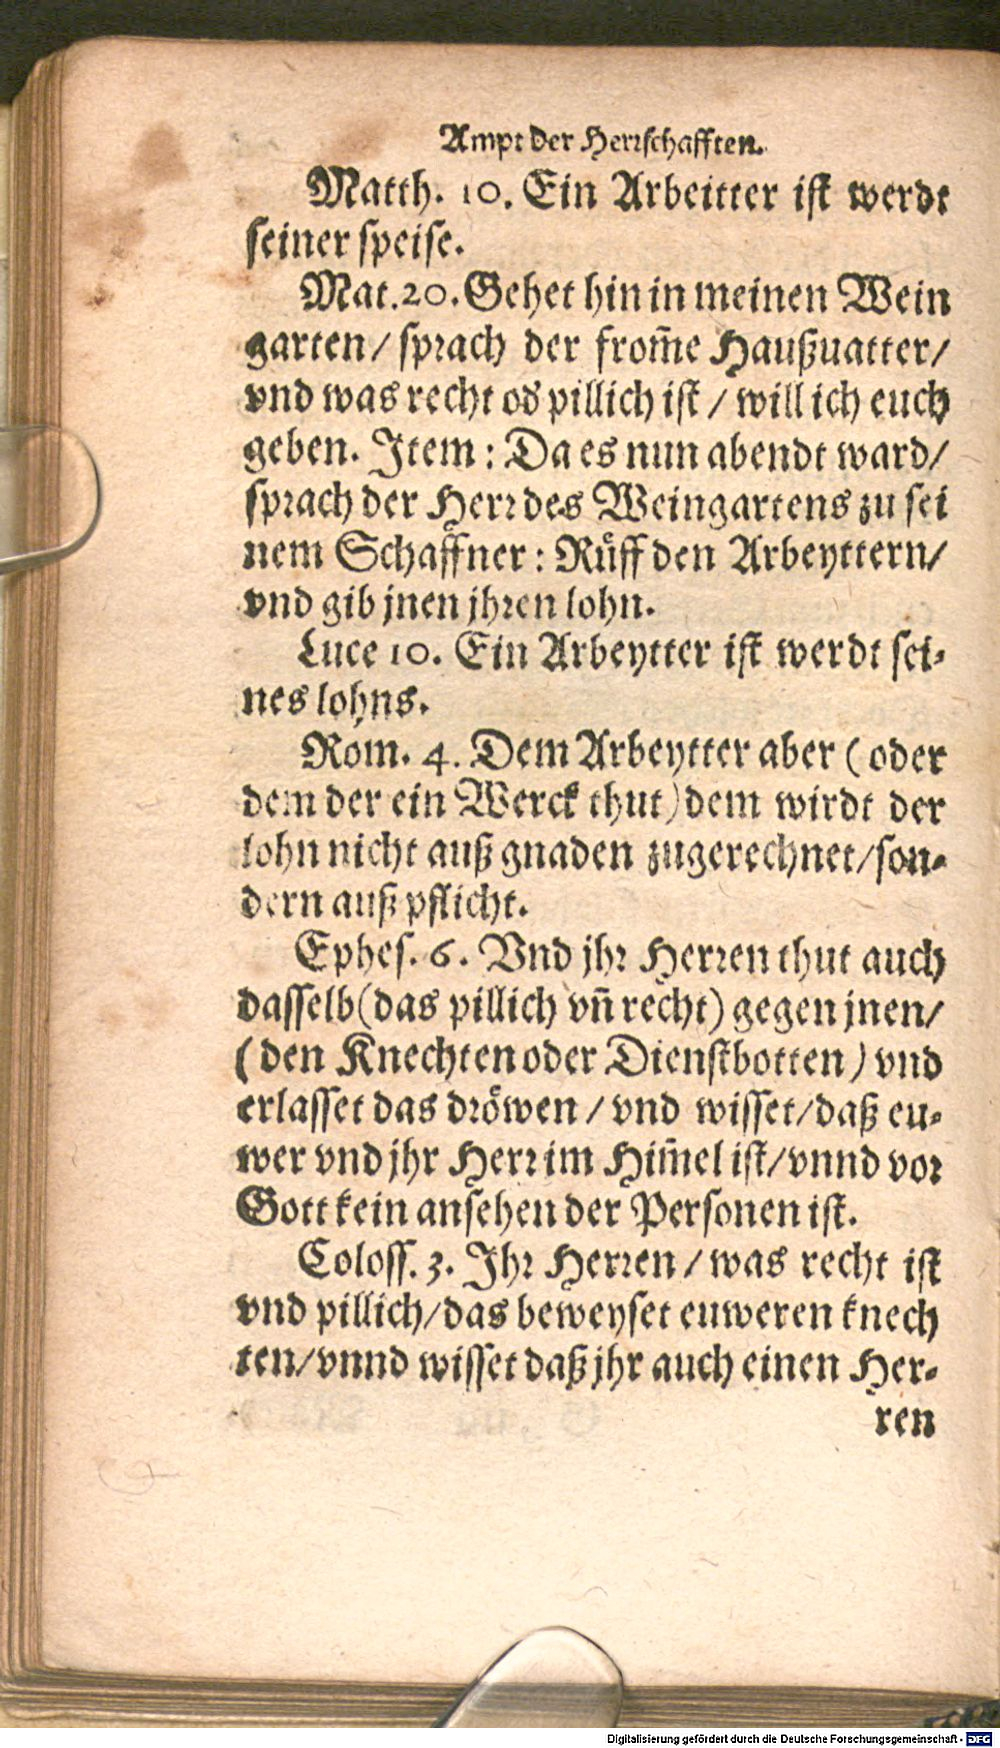 Ampt der Herrschafften.
Matth. 10. Ein Arbeitter ist werdt
seiner speise.
Mat. 20. Gehet hin in meinen Wein
garten/ sprach der from̃e Haußuatter/
vnd was recht od pillich ist / will ich euch
geben. Item : Da es nun abendt ward/
sprach der Herr des Weingartens zu sei
nem Schaffner : Rüff den Arbeyttern/
vnd gib jnen jhren lohn.
Luce 10. Ein Arbeytter ist werdt sei-
nes lohns.
Rom. 4. Dem Arbeytter aber ( oder
dem der ein Werck thut) dem wirdt der
lohn nicht auß gnaden zugerechnet/son-
dern auß pflicht.
Ephes. 6. Vnd jhr Herren thut auch
dasselb(das pillich vñ recht) gegen jnen/
( den Knechten oder Dienstbotten ) vnd
erlasset das dröwen / vnd wisset/daß eu-
wer vnd jhr Herr im Him̃el ist/vnnd vor
Gott kein ansehen der Personen ist.
Coloss. 3. Ihr Herren / was recht ist
vnd pillich/das beweyset euweren knech
ten/vnnd wisset daß jhr auch einen Her-
ren
Digitalisierung gefördert durch die Deutsche Forschungsgemeinschaft - DFG